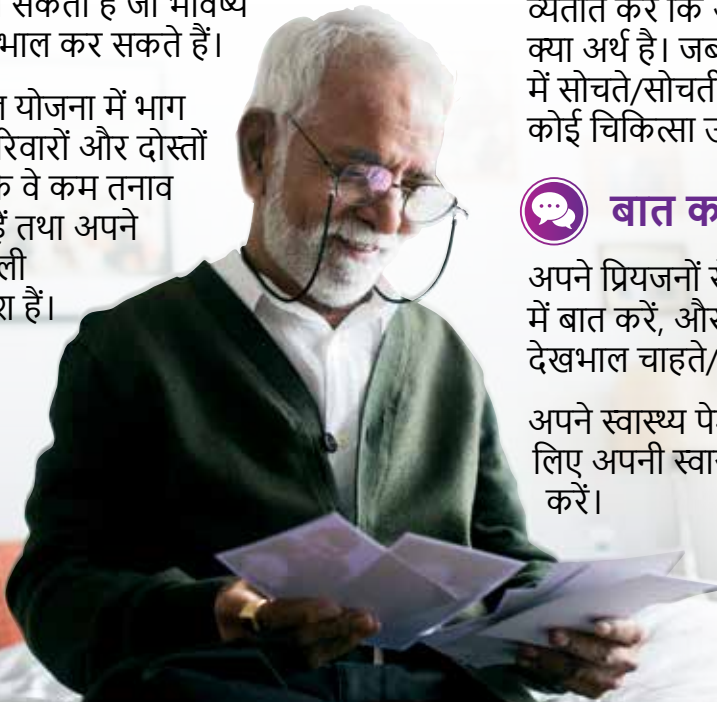 सकता है जो भविष्य
भाल कर सकते हैं।
योजना में भाग
रिवारों और दोस्तों
वे कम तनाव
तथा अपने
ली
हैं।
व्यतीत करें कि
क्या अर्थ है। जब
में सोचते/सोचती
कोई चिकित्सा
बात क
अपने प्रियजनों से
में बात करें, और
देखभाल चाहते/
अपने स्वास्थ्य पे
लिए अपनी स्वा
करें।